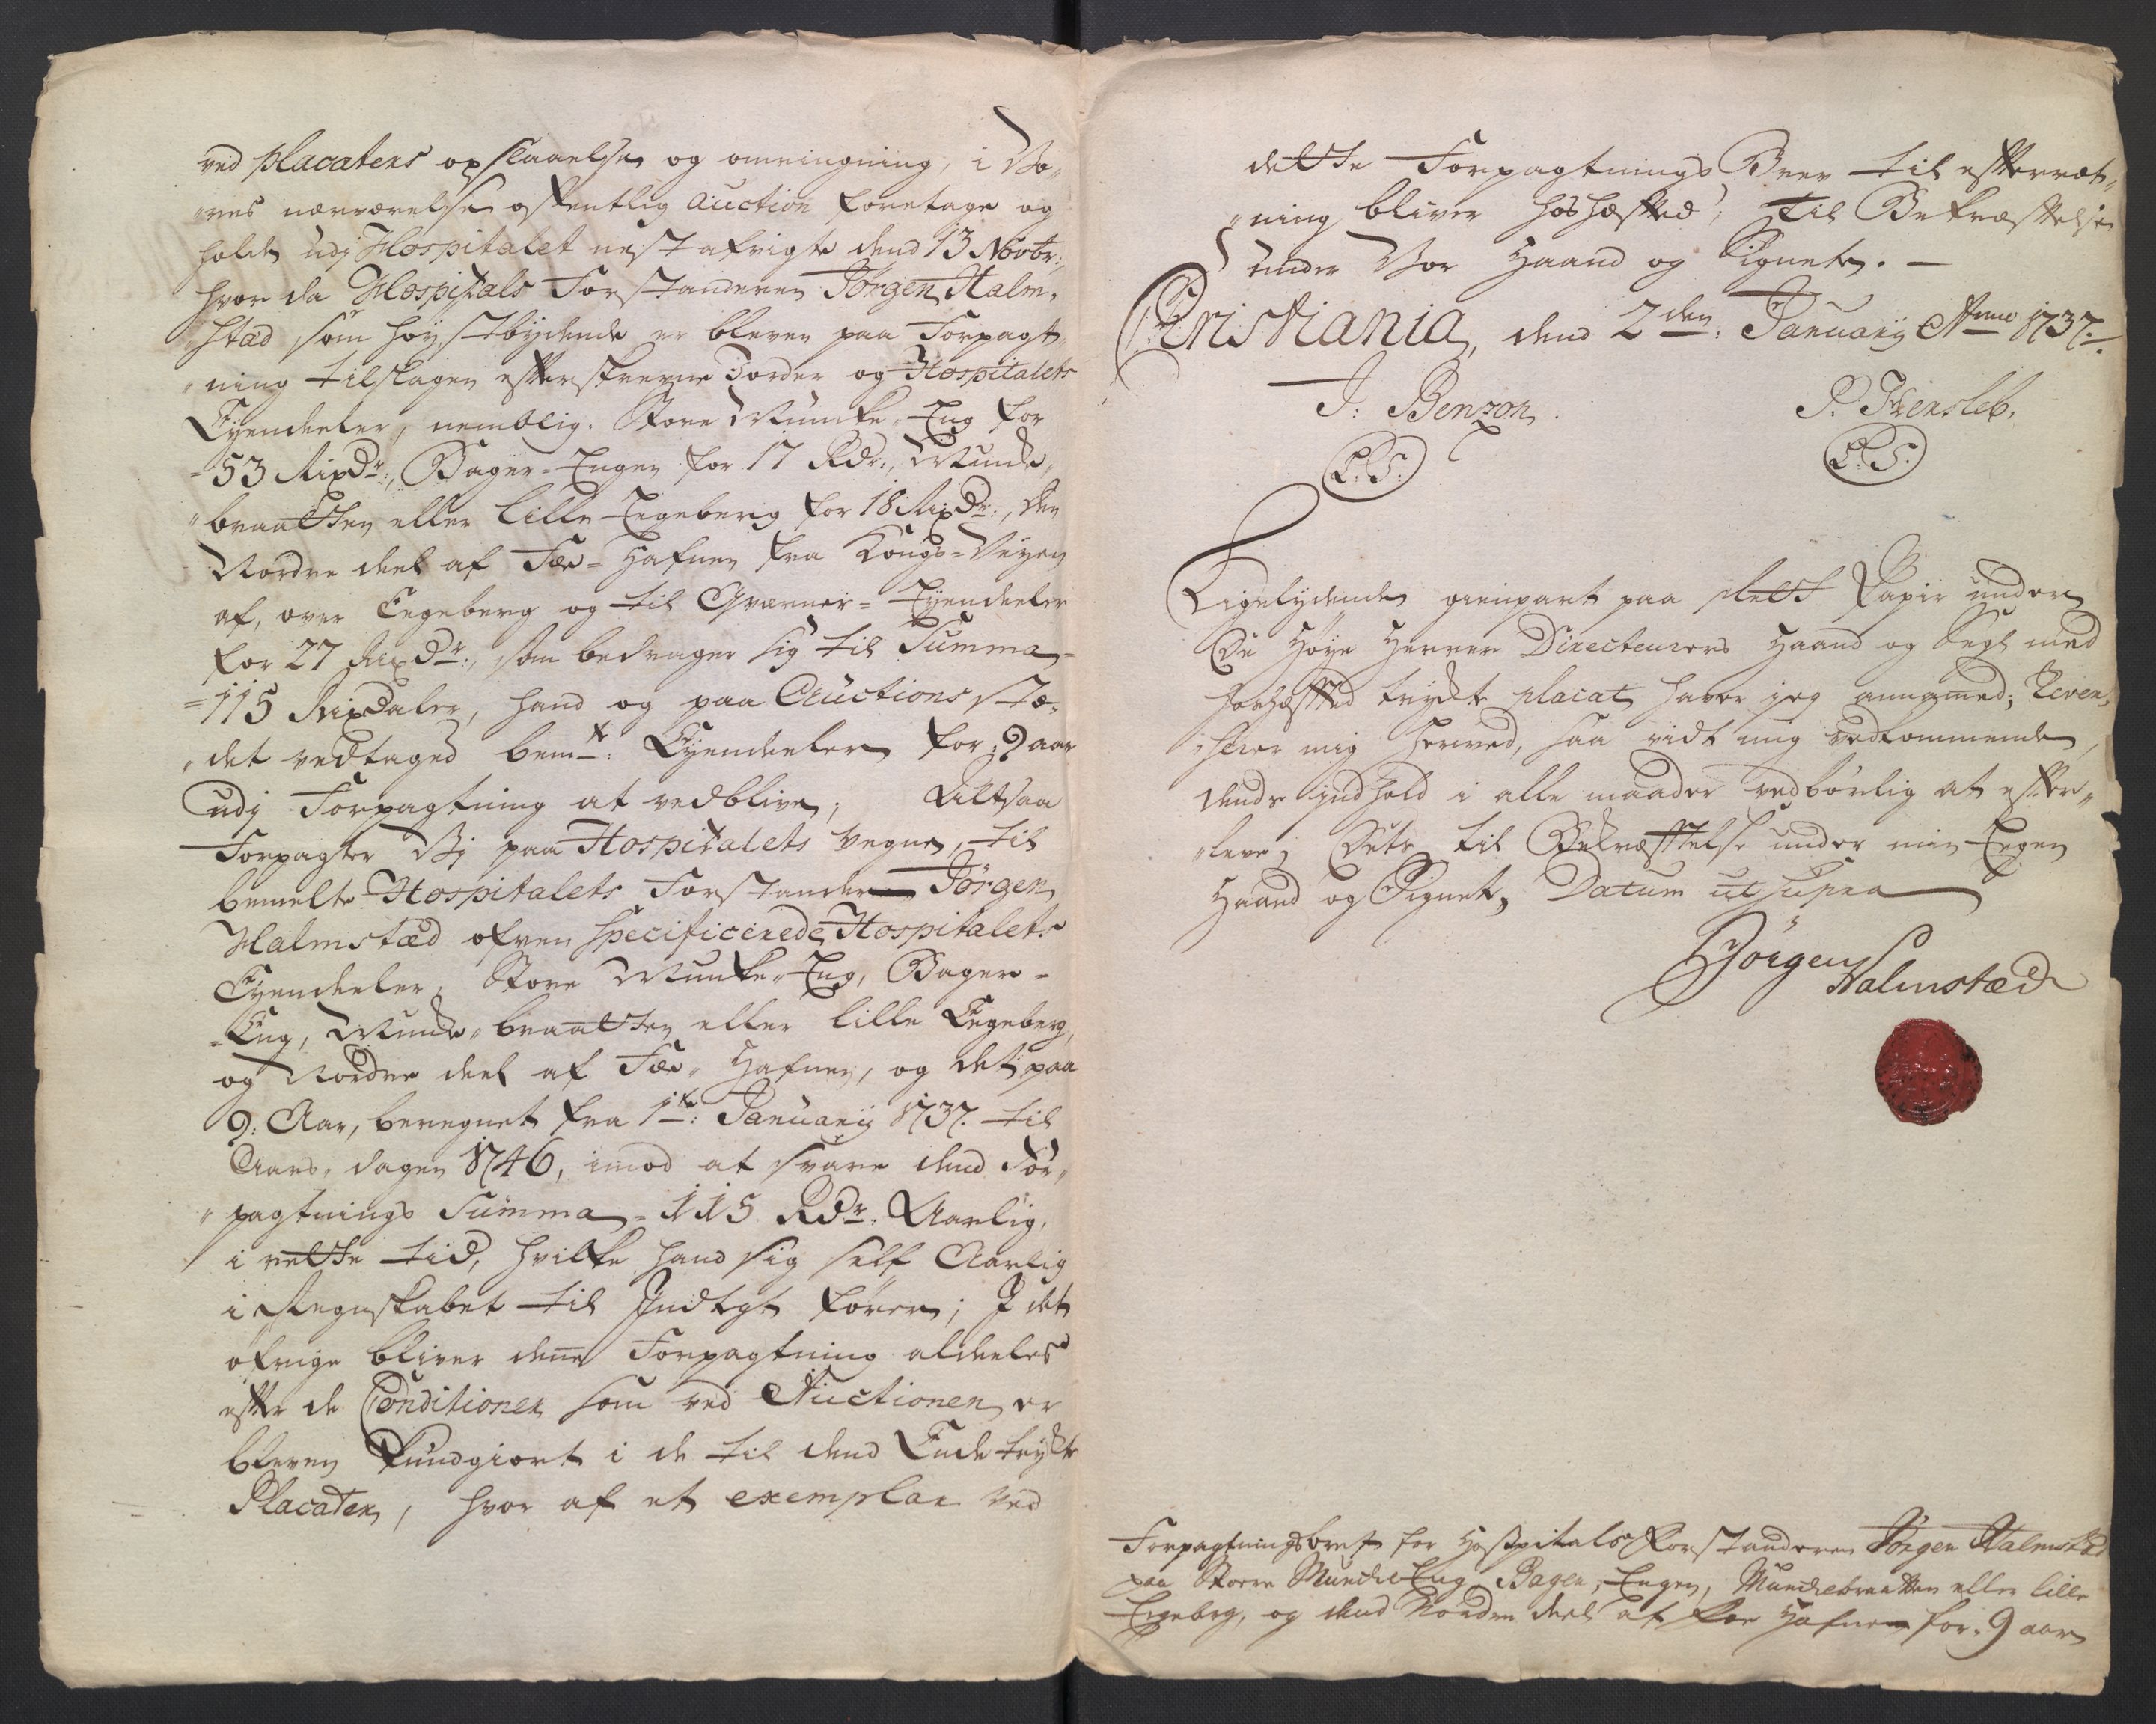 ved placaters opslaaelse og omringning, i Vo„
„res nærværelse offentlig auction foretage og
holde udj Hospitalet nest afvigte dend 13 Novbr:,
hvor da Hospitals Forstanderen Jörgen Halm„
„stad som høystbydende er bleven paa Forpagt„
„ning tilslagen efterskrevne Jorder og Hospitalets
Eyendeeler, nemblig. Store Muncke-Eng for
=53 Rixdr:, Bager=Engen for 17 Rdr:, Muncke„
„braatten eller lille Eegeberg for 18 Rixdr:, den
Nordre deel af Fæe=Hafnen fra Kongs=Veyen
af, over Eegeberg og til Qværner=Eyendeeler
for 27 Rixdr:, som bedrager sig til Summa=
=115 Rixdaler, hand og paa Auctions stæ„
„det vedtaged bemte: Eyendeeler for 9 aar
udj Forpagtning at vedblive; Altsaa
Forpagter Vj paa Hospitalets Vegne, til
bemelte Hospitalets Forstander Jörgen
Halmstæd ofven specificerede Hospitalets
Eyendeeler, Store Muncke-Eng, Bager=
=Eng, Muncke„braatten eller lille Eegeberg,
og Nordre deel af Fæe„Hafnen, og det paa
9: Aar, beregnet fra 1te: Januarij 1737. til
Aars„dagen 1746, imod at svare dend For„
„pagtnings Summa=115 Rdr: Aarlig,
i rette tid, hvilke hand sig self Aarlig
i Regnskabet til Indtegt fører; I det
øfrige bliver denne Forpagtning aldeeles
efter de Conditioner som ved Auctionen er
bleven kundgiort i de til dend Ende trykte
Placater, hvor af et exemplar ved
dette Forpagtnings Brev til efterræt„
„ning bliver hoshæfted; Til Bekræftelse
under Vor Haand og Signeter.—
Christiania, dend 2den: Januarij Anno 1737.
J: Benzon. P. Hersleb.
L.S. L.S.
Ligelydende gienpart paa slett Papir under
De Høye Herrer Directeurers Haand og Segl med
forhæfted trykt placat haver jeg annammed; Rever„
„serer mig herved, saa vidt mig vedkommende,
dends indhold i alle maader vedbørlig at efter„
„leve; Dete til Bekræfftelse under min Eegen
Haand og Signet, Datum ut supra
Jörgen Halmstæd
Forpagtningsbref for Hospitals Forstanderen Jörgen Halmstæd
paa Stoere Muncke Eng Bager, Engen, Munckebraatten eller lille
Eegebrg, og dend Nordre deel af Fæe Hafnen for 9 aar